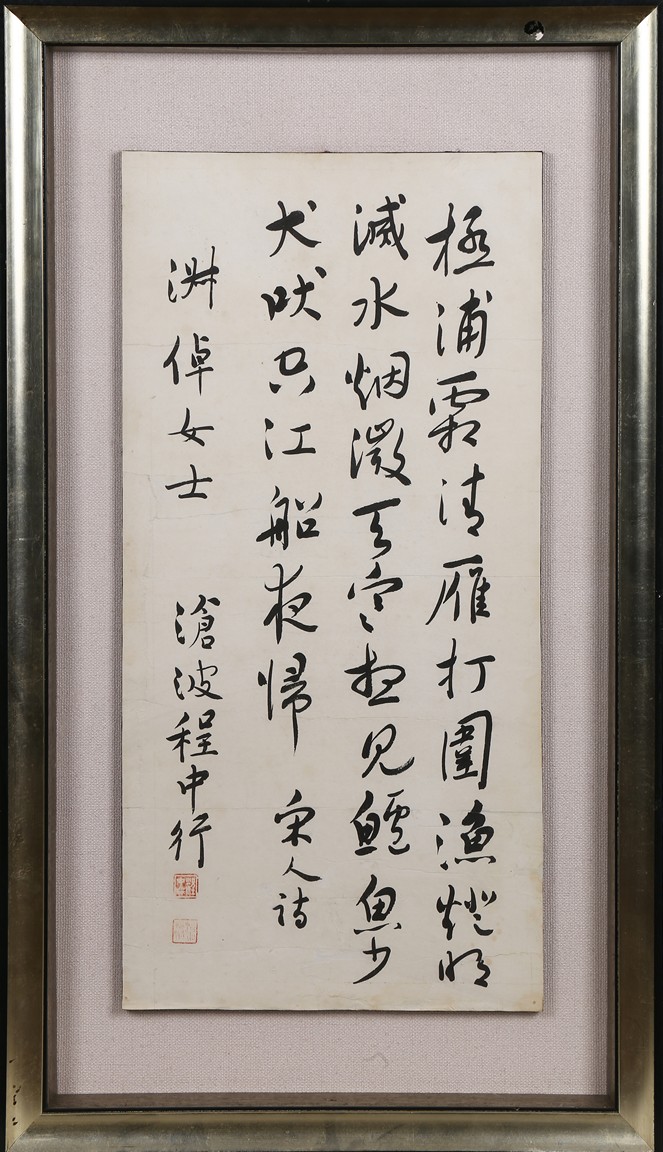 極浦霜清雁打圍漁燈明
滅水烟微天寒想見鱸魚少
犬吠空江船夜歸 宋人詩
淵倬女士 滄波程中行